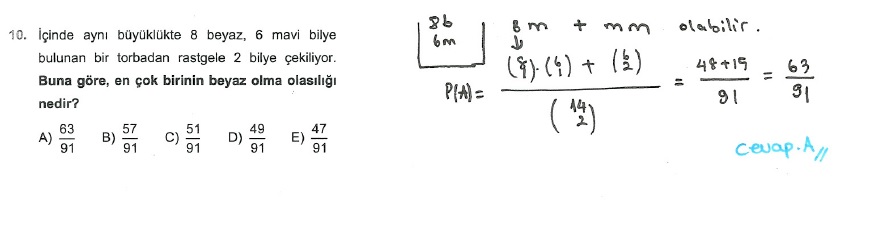 10. İçinde aynı büyüklükte 8 beyaz, 6 mavi bilye
bulunan bir torbadan rastgele 2 bilye çekiliyor.
Buna göre, en çok birinin beyaz olma olasılığı
nedir?
A) 63/91 B) 57/91 C) 51/91 D) 49/91 E) 47/91
8b
6m
bm + mm olabilir.
P(A) = ((8 1).(6 1) + (6 2)) / (14 2) = 48+15 / 91 = 63 / 91
Cevap.A//